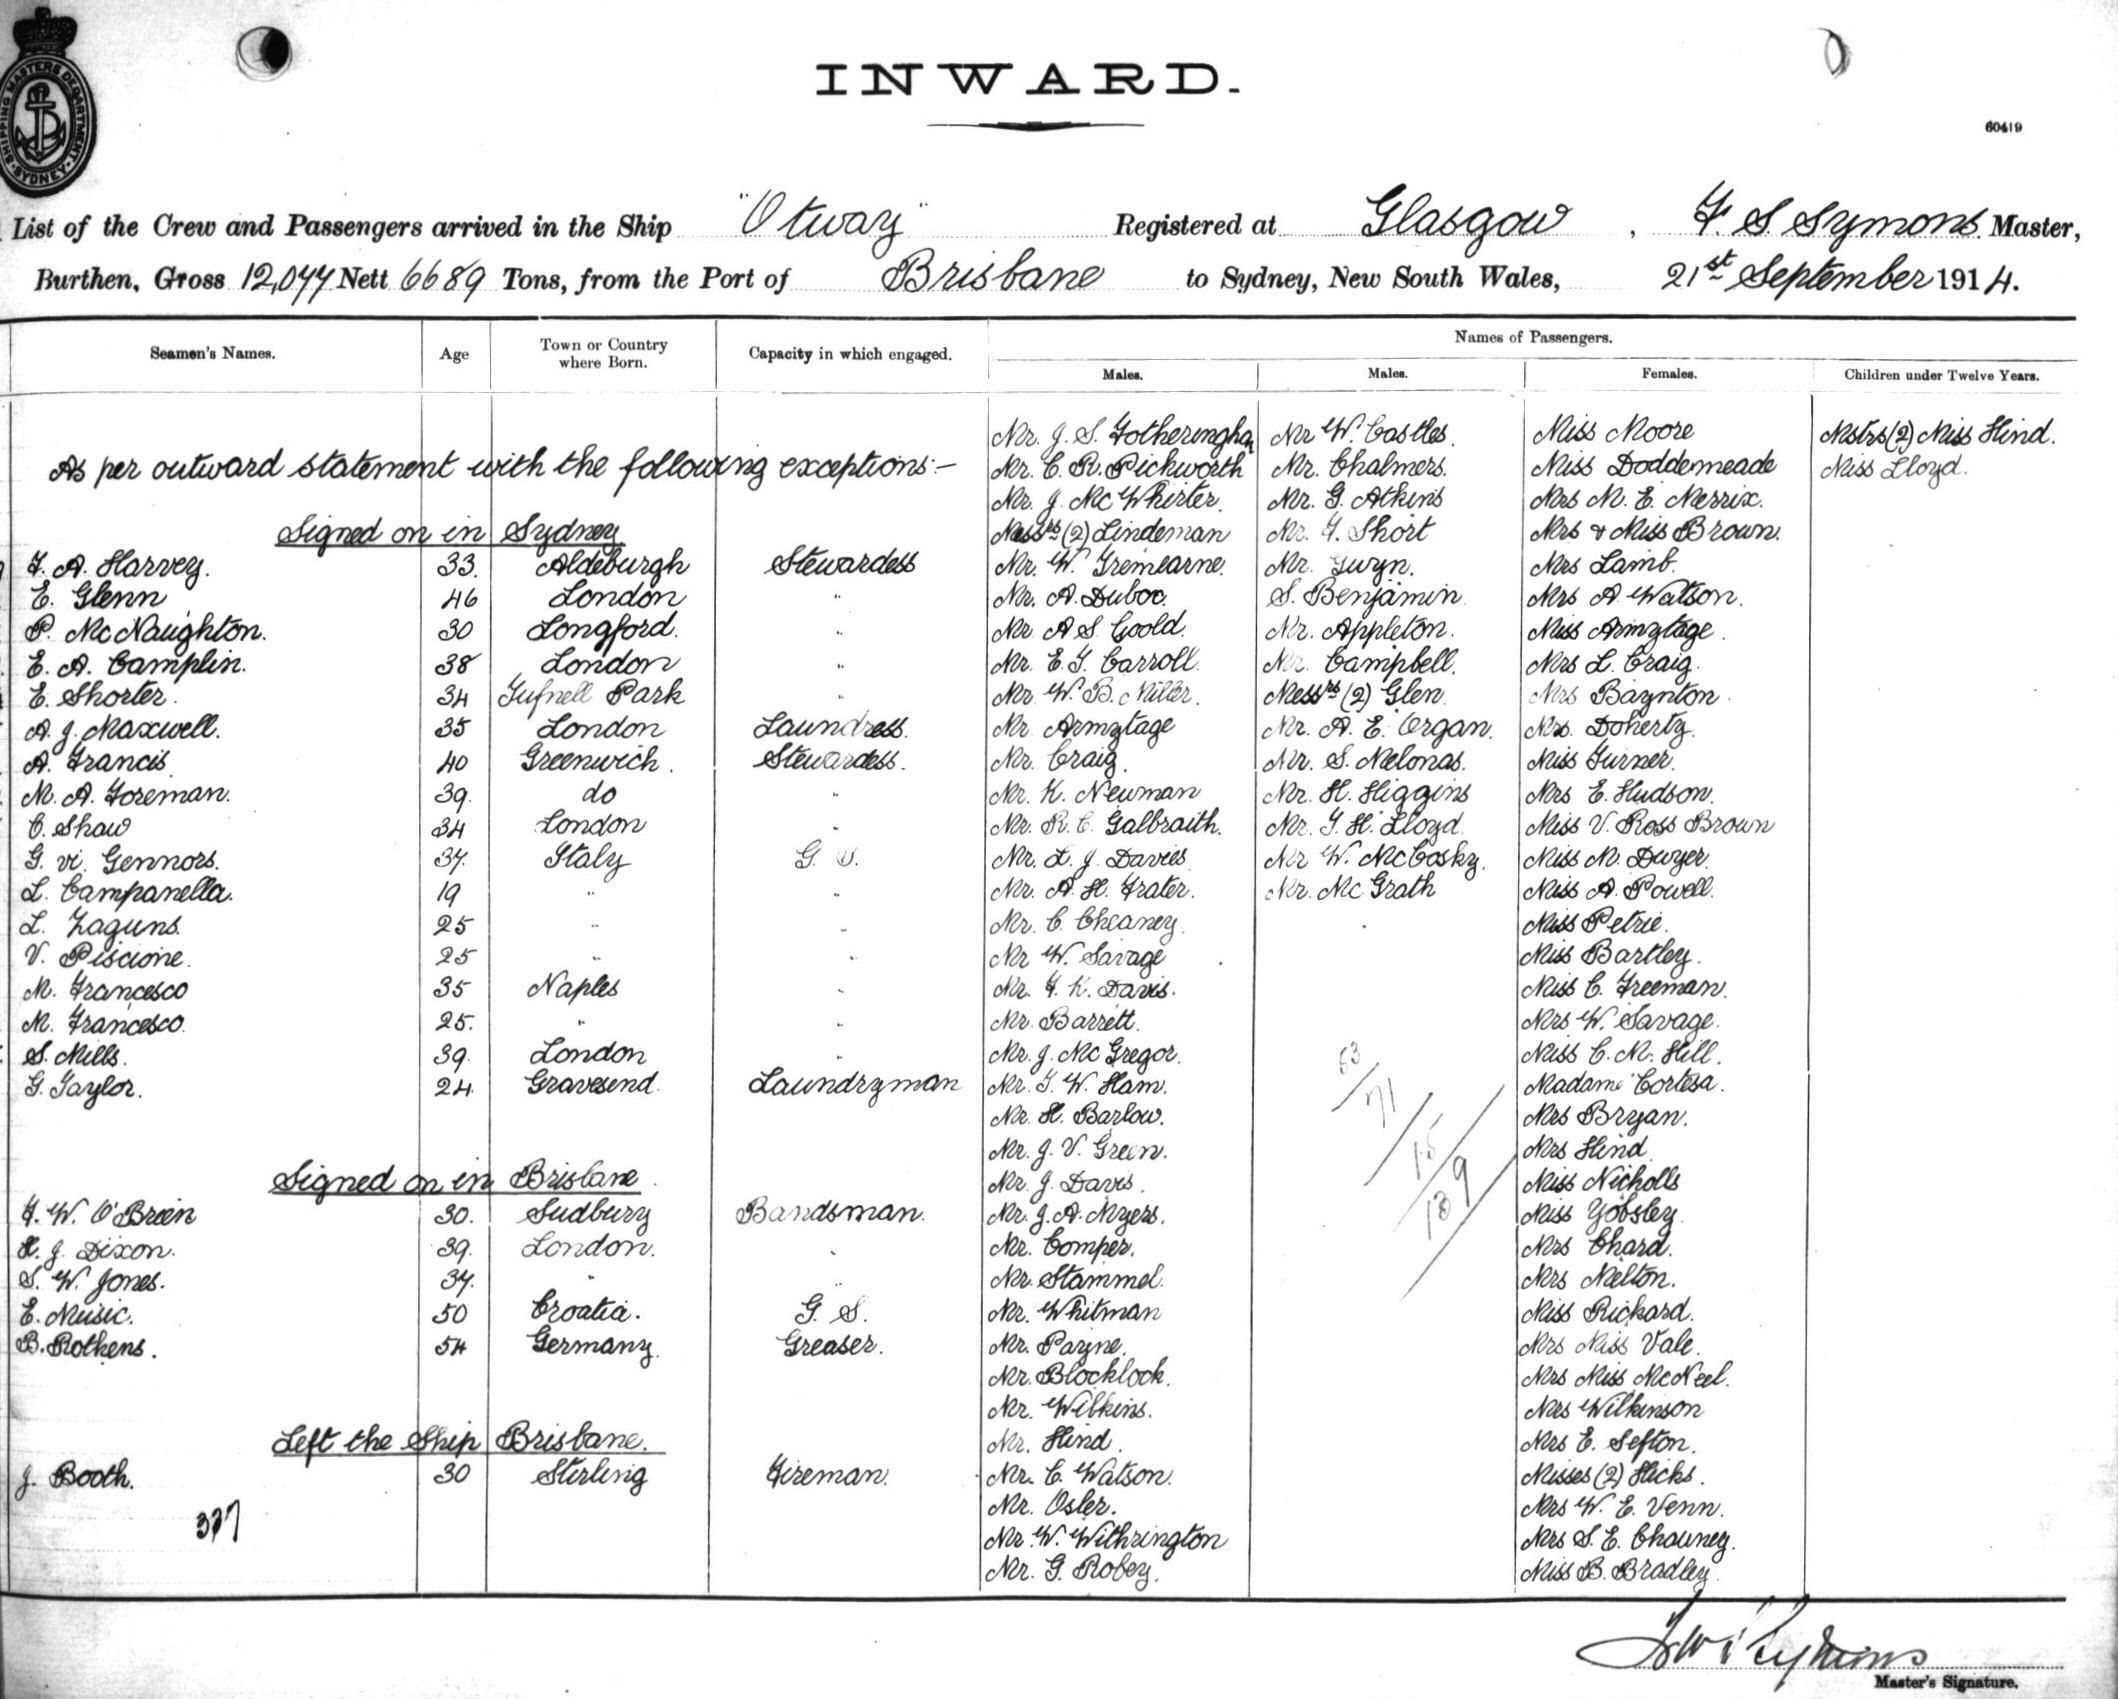 SHIPPING MASTERS DEPARTMENT
SYDNEY
INWARD.
60419
List of the Crew and Passengers arrived in the Ship "Otway" Registered at Glasgow, F. S. Symons Master,
Burthen, Gross 12,077 Nett 6689 Tons, from the Port of Brisbane to Sydney, New South Wales, 21st September 1914.
Seamen's Names. Age Town or Country where Born. Capacity in which engaged. Names of Passengers.
Males. Males. Females. Children under Twelve Years.
As per outward statement with the following exceptions:-
Signed on in Sydney
F. A. Harvey. 33. Aldeburgh Stewardess
E. Glenn 46 London "
P. McNaughton. 30 Longford. "
E. A. Camplin. 38 London "
E. Shorter. 34 Tufnell Park "
A. J. Maxwell. 35 London Laundress.
A. Francis 40 Greenwich. Stewardess.
M. A. Foreman. 39. do "
C. Shaw 34 London "
G. vi. Gennors. 37. Italy G. S.
L. Campanella. 19 " "
L. Zaguns. 25 " "
V. Piscione. 25 " "
M. Francesco 35 Naples "
M. Francesco. 25. " "
S. Mills. 39. London "
G. Taylor. 24. Gravesend. Laundryman
Signed on in Brisbane.
F. W. O'Brien 30. Sudbury Bandsman.
H. J. Dixon. 39. London. "
S. W. Jones. 37. " "
E. Music. 50 Croatia. G. S.
B. Rothens. 54 Germany. Greaser.
Left the Ship Brisbane.
J. Booth. 30 Stirling Fireman.
337
Mr. J. S. Fotheringham
Mr. C. R. Pickworth
Mr. J. McWhirter.
Messrs (2) Lindeman
Mr. W. Tremearne.
Mr. A. Duboc.
Mr A S. Coold.
Mr. E. F. Carroll.
Mr W. B. Miller.
Mr Armytage
Mr. Craig.
Mr. K. Newman
Mr. R. C. Galbraith.
Mr. L. J. Davies
Mr. A. H. Frater.
Mr. C. Cheaney.
Mr W. Savage
Mr. F. K. Davis.
Mr Barrett.
Mr. J. McGregor.
Mr. T. W. Ham.
Mr H. Barlow.
Mr. J. V. Green.
Mr. J. Davis.
Mr. J. A. Myers.
Mr. Comper.
Mr. Stammel.
Mr. Whitman
Mr. Payne.
Mr. Blocklock.
Mr. Wilkins.
Mr. Hind.
Mr. C. Watson.
Mr. Osler.
Mr. W. Withrington
Mr. G. Robey.
Mr W. Castles.
Mr. Chalmers.
Mr. G. Atkins
Mr. F. Short
Mr. Gwyn.
S. Benjamin
Mr. Appleton.
Mr. Campbell.
Messrs (2) Glen.
Mr. A. E. Organ.
Mr. S. Melonas.
Mr. H. Higgins
Mr. F. H. Lloyd.
Mr W. McCosky.
Mr. McGrath
53
71
15
139
Miss Moore
Miss Doddemeade
Mrs M. E. Merrix.
Mrs & Miss Brown.
Mrs Lamb.
Mrs A. Watson.
Miss Armytage.
Mrs L. Craig.
Mrs Baynton.
Mrs. Doherty.
Miss Turner.
Mrs E. Hudson.
Miss V. Ross Brown
Miss M. Dwyer.
Miss A. Powell.
Miss Petrie.
Miss Bartley.
Miss C. Freeman.
Mrs W. Savage.
Miss C. M. Hill.
Madame Cortesa.
Mrs Bryan.
Mrs Hind
Miss Nicholls
Miss Yobsley.
Mrs Chard.
Mrs Melton.
Miss Rickard.
Mrs Miss Vale.
Mrs Miss McNeel.
Mrs Wilkinson
Mrs E. Sefton.
Misses (2) Hicks.
Mrs W. E. Venn.
Mrs S. E. Chauney.
Miss B. Bradley.
Mstrs (2) Miss Hind.
Miss Lloyd.
Master's Signature.